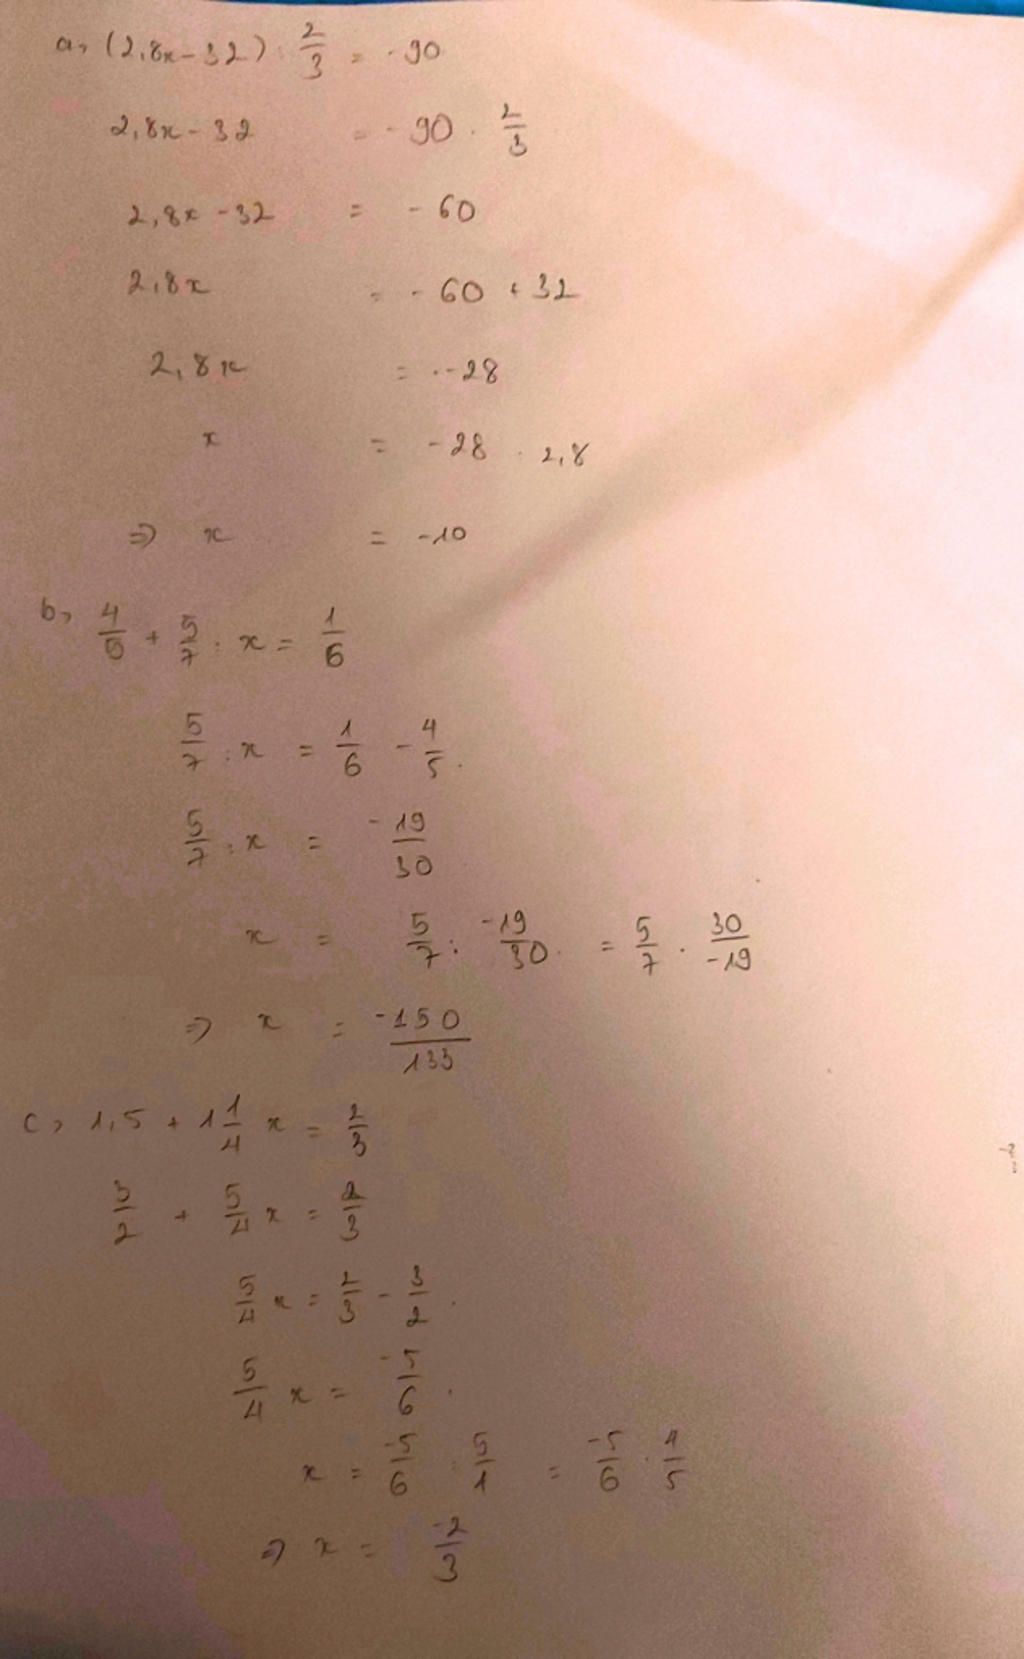 a, (2,8x - 32) : 2/3 = -90
2,8x - 32 = -90 . 2/3
2,8x - 32 = -60
2,8x = -60 + 32
2,8x = -28
x = -28 : 2,8
=> x = -10
b, 4/5 + 5/7 : x = 1/6
5/7 : x = 1/6 - 4/5.
5/7 : x = -19/30
x = 5/7 : -19/30. = 5/7 . 30/-19
=> x = -150/133
c, 1,5 + 1 1/4 x = 2/3
3/2 + 5/4 x = 2/3
5/4 x = 2/3 - 3/2.
5/4 x = -5/6.
x = -5/6 : 5/4 = -5/6 . 4/5
=> x = -2/3